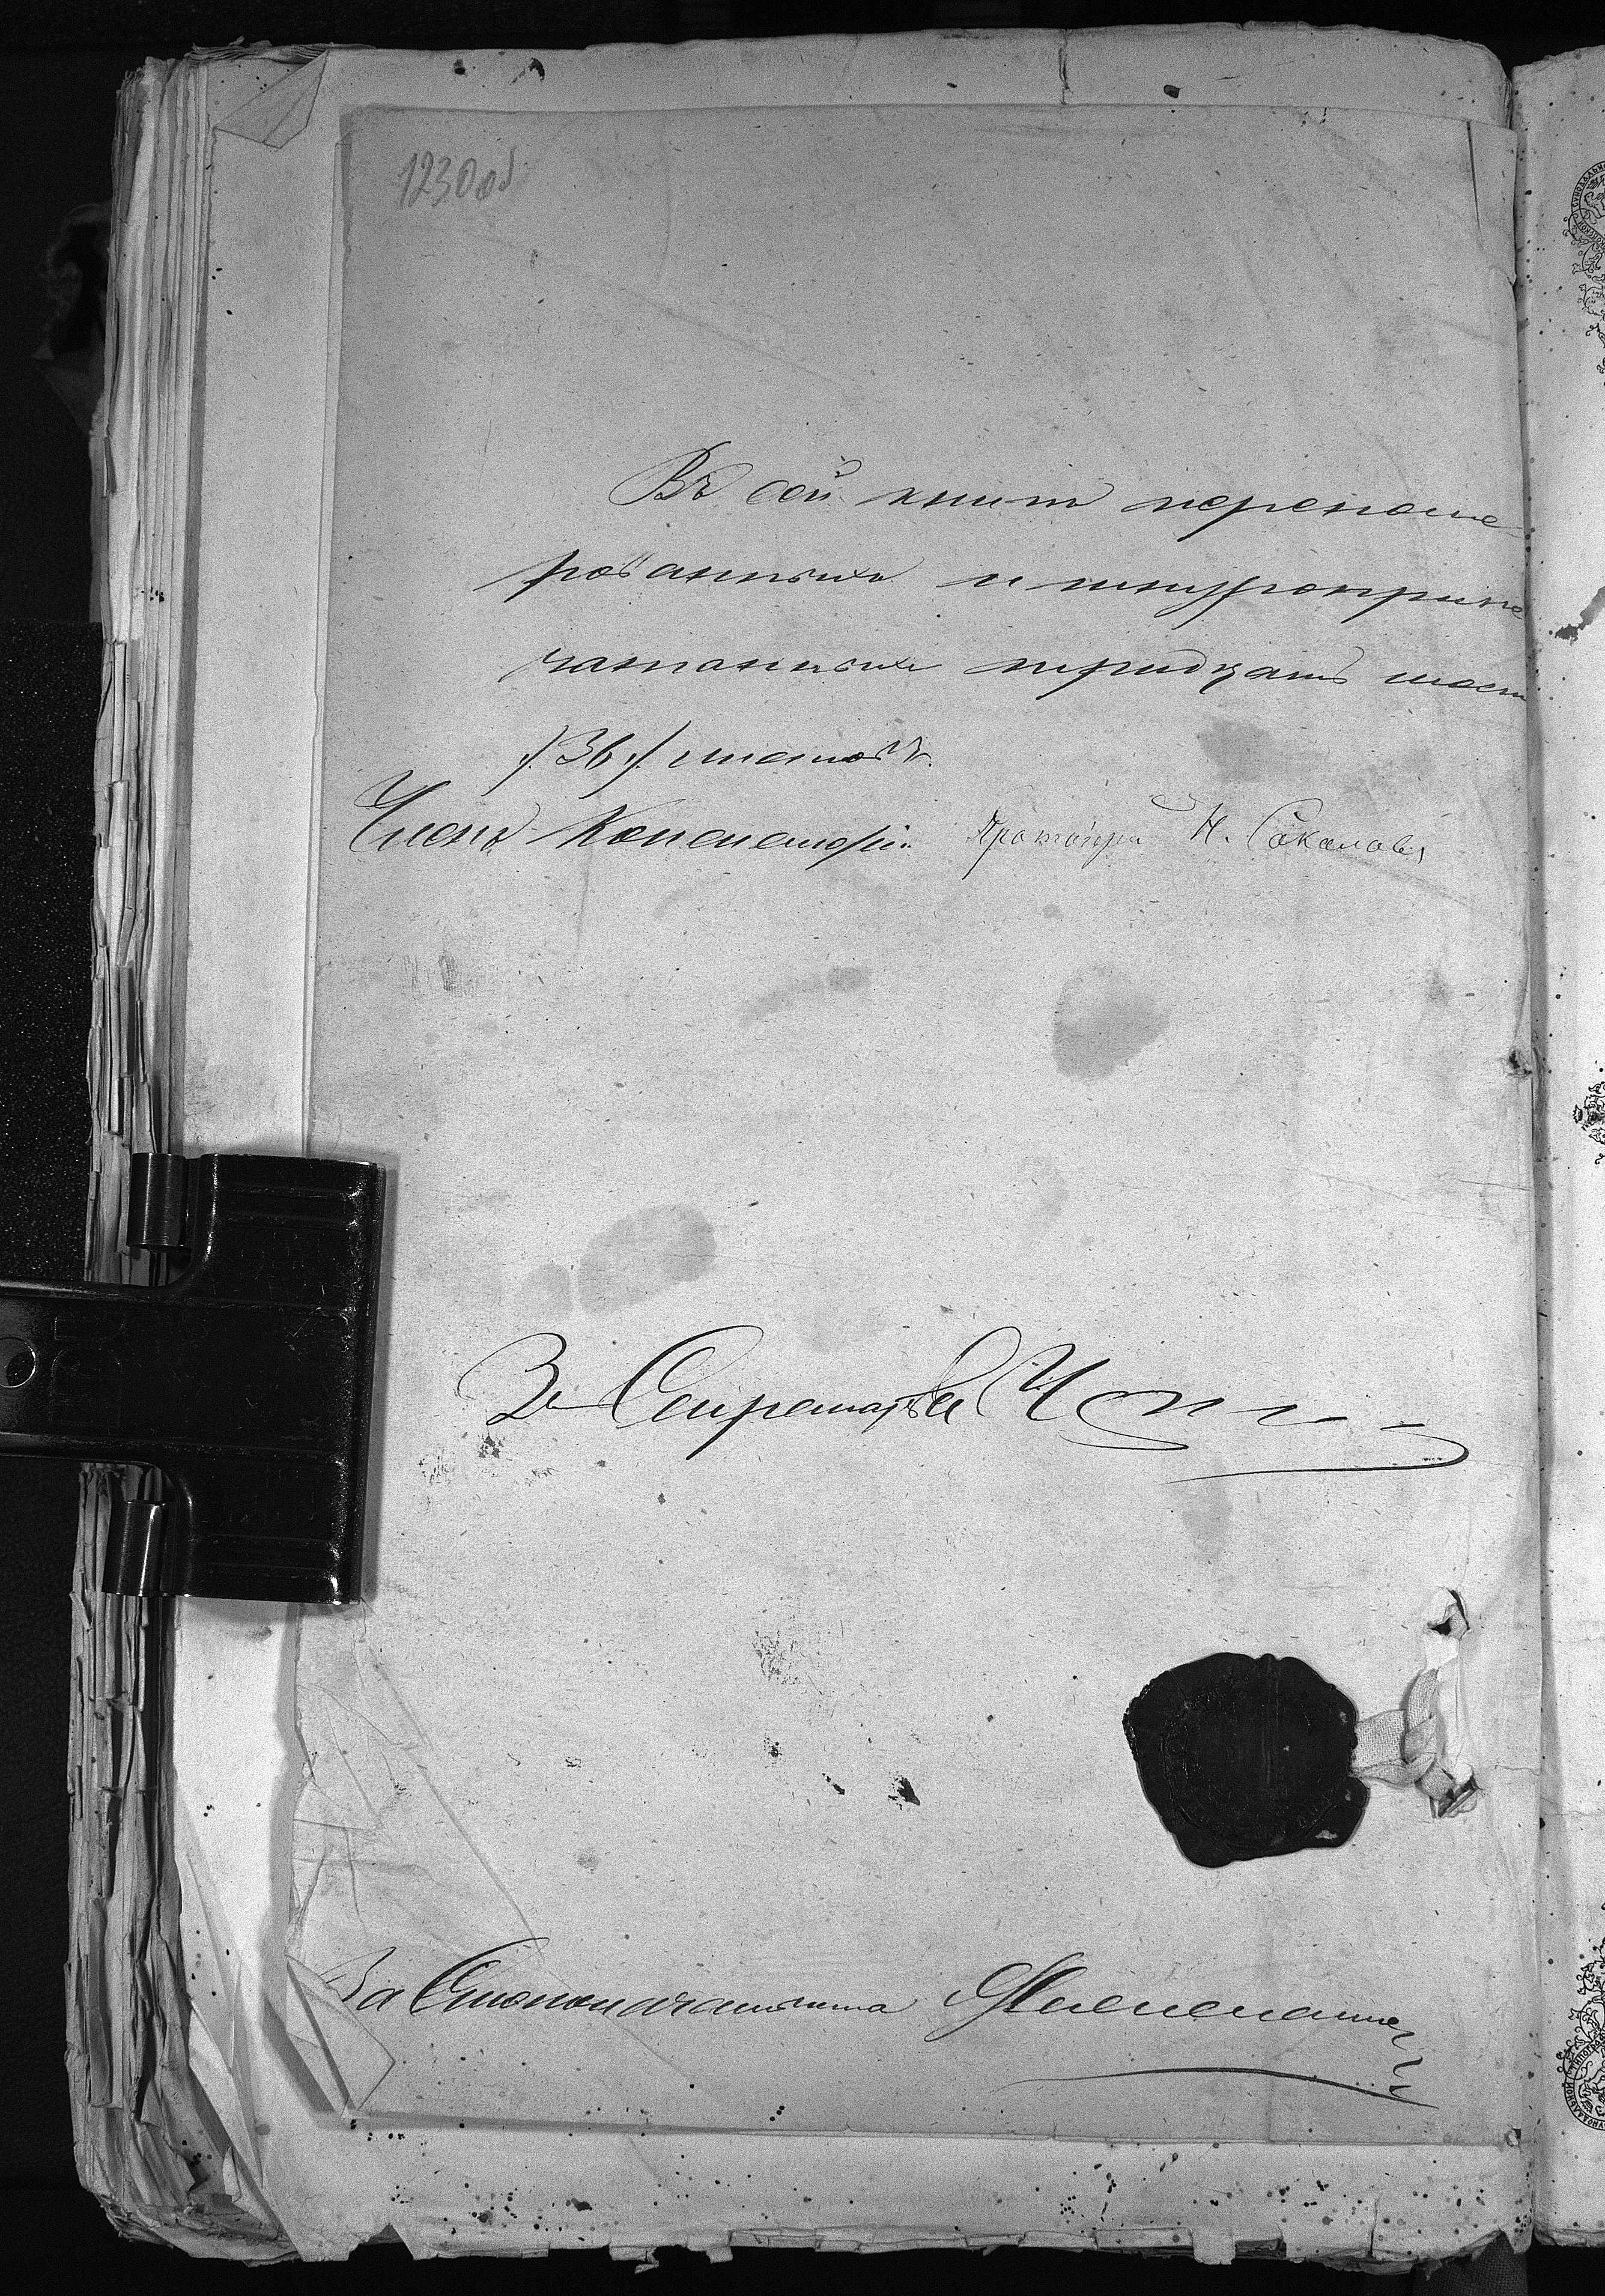 1230 об
Въ сей книгѣ перенуме
рованныхъ и шнуроприпе
чатанныхъ тридцать шесть
/36/ листовъ.
Членъ Консисторіи Протоіерей Н. Соколовъ
За Секретаря
За Столоначальника